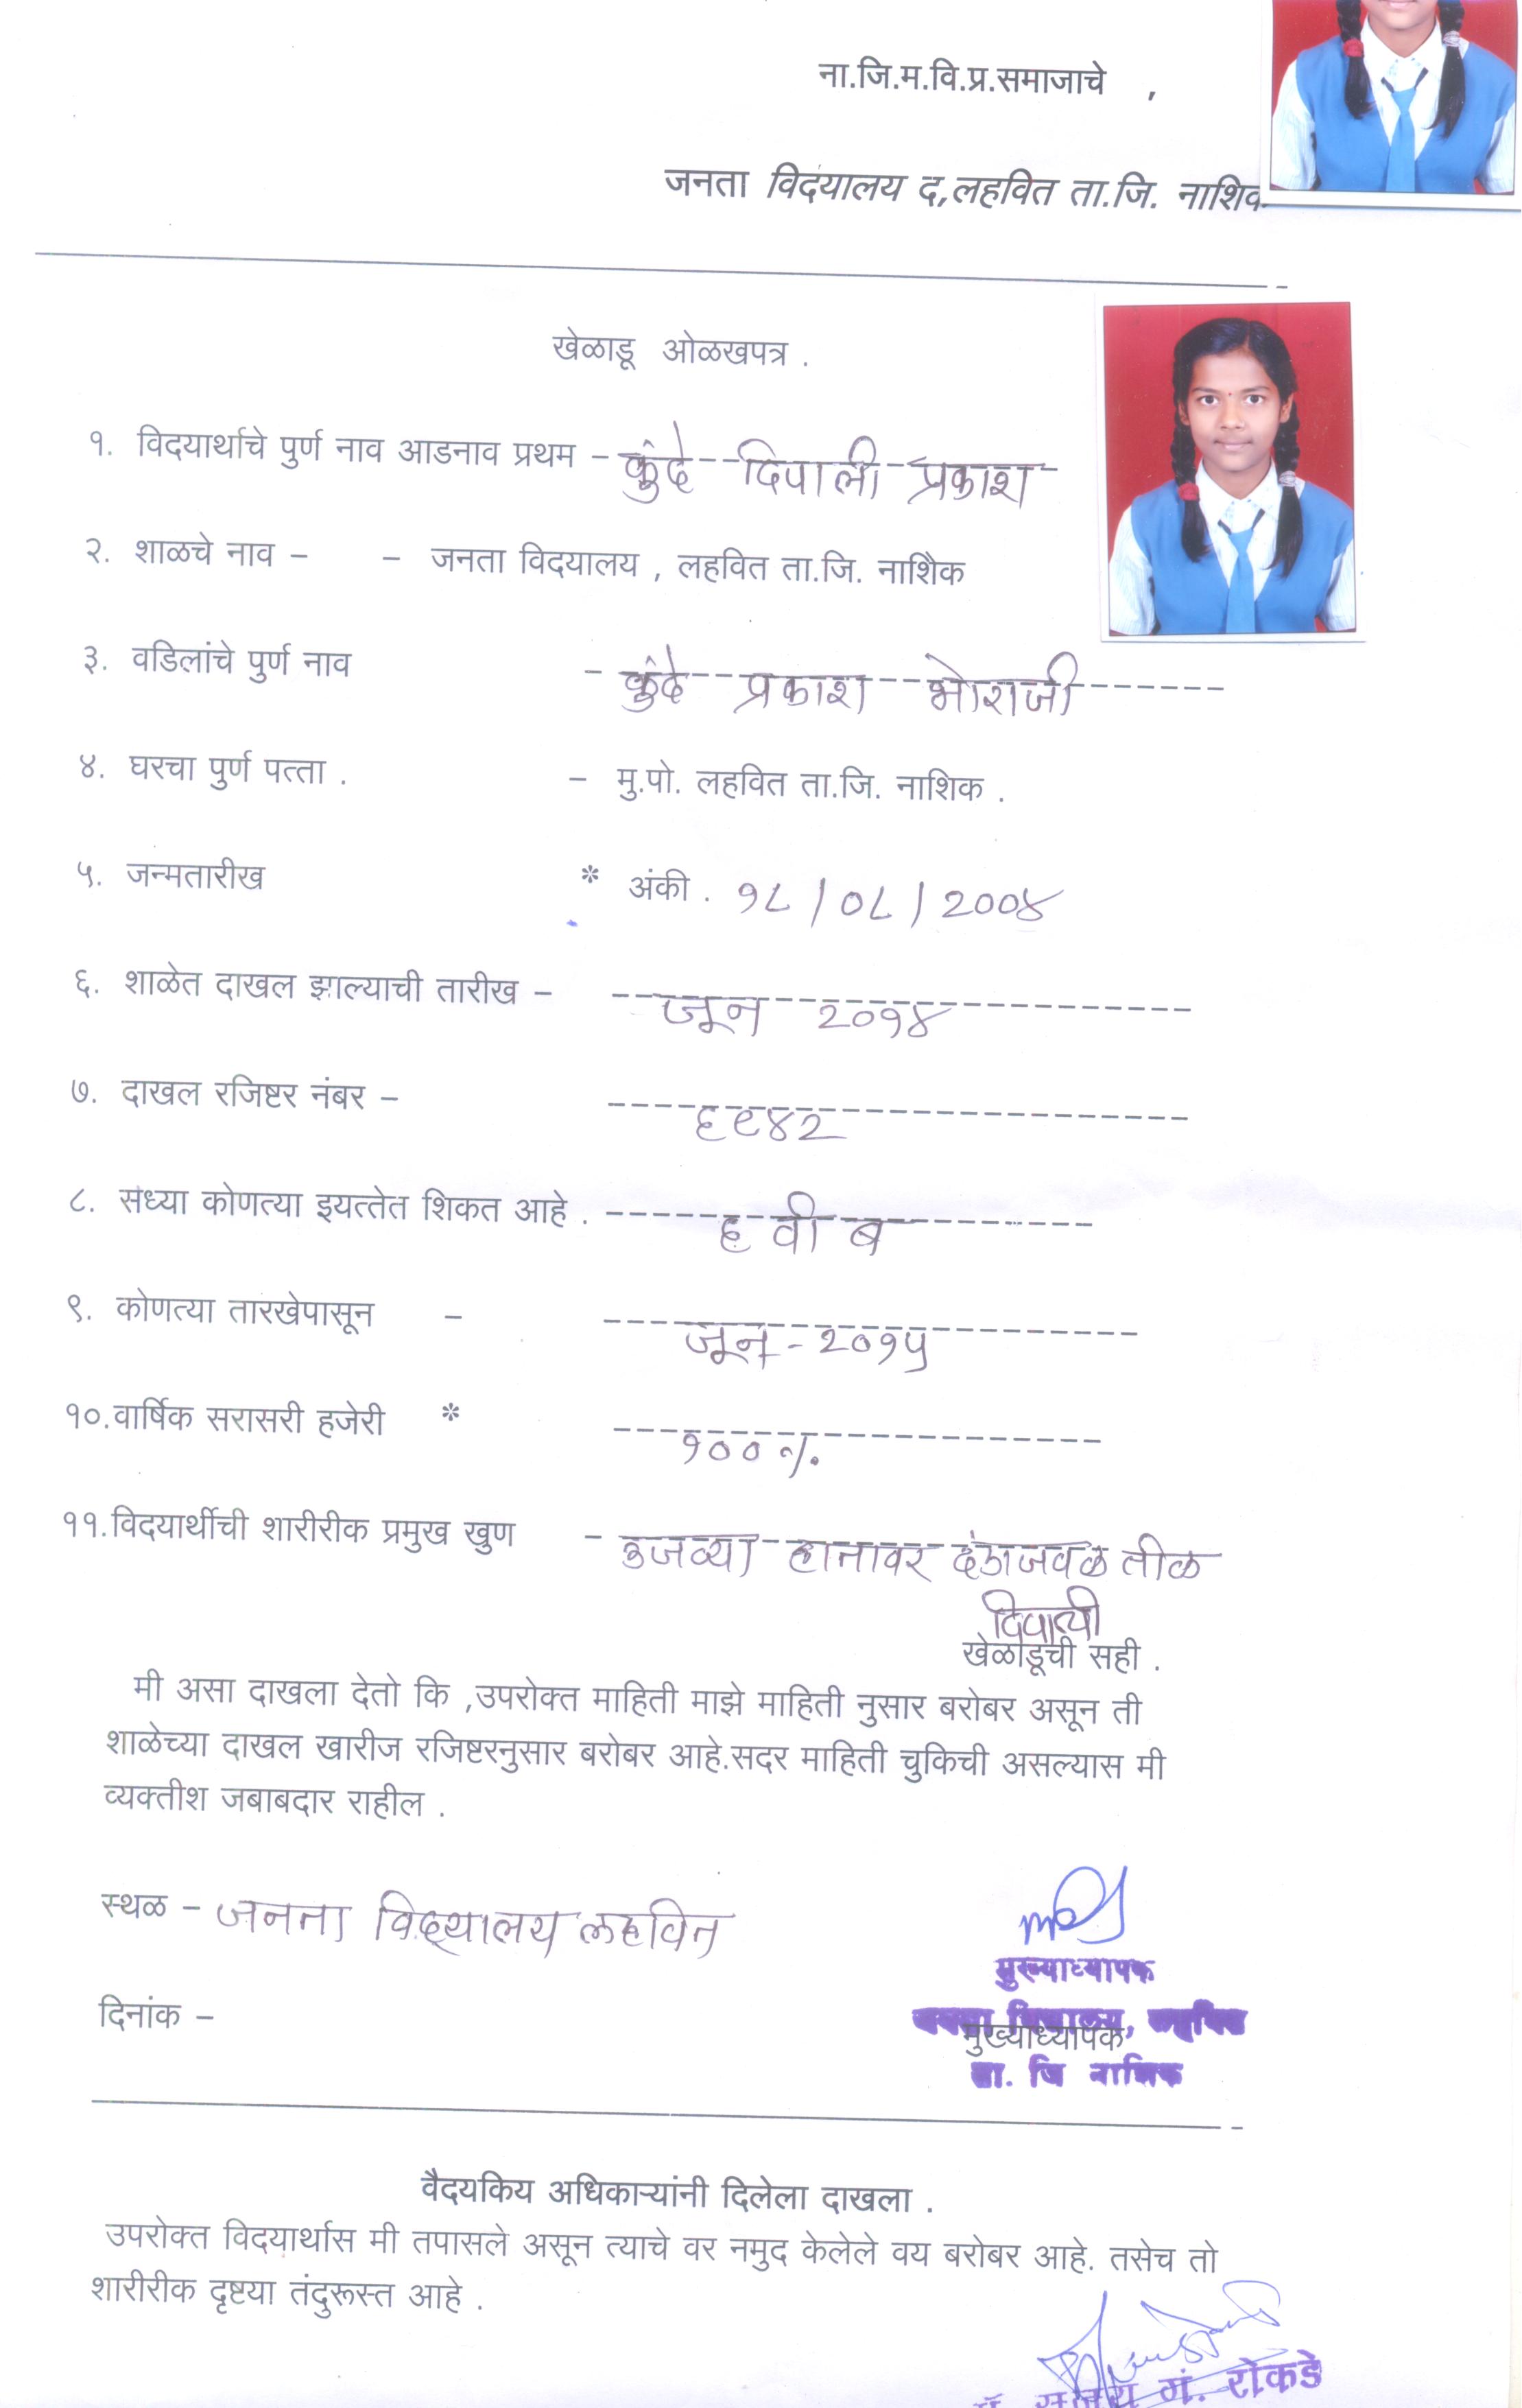 ना.जि.म.वि.प्र.समाजाचे ,
जनता विदयालय द,लहवित ता.जि. नाशिक
खेळाडू ओळखपत्र .
१. विदयार्थाचे पुर्ण नाव आडनाव प्रथम – कुंदे दिपाली प्रकाश
२. शाळचे नाव – – जनता विदयालय , लहवित ता.जि. नाशिक
३. वडिलांचे पुर्ण नाव - कुंदे प्रकाश भोराजी
४. घरचा पुर्ण पत्ता . – मु.पो. लहवित ता.जि. नाशिक .
५. जन्मतारीख * अंकी . १८/०८/२००४
६. शाळेत दाखल झाल्याची तारीख – जून २०१४
७. दाखल रजिष्टर नंबर – ६९४२
८. सध्या कोणत्या इयत्तेत शिकत आहे . ६ वी ब
९. कोणत्या तारखेपासून – जून - २०१५
१०.वार्षिक सरासरी हजेरी * १००%
११.विदयार्थीची शारीरीक प्रमुख खुण - उजव्या हातावर दंडाजवळ तीळ
दिपाली
खेळाडूची सही .
मी असा दाखला देतो कि ,उपरोक्त माहिती माझे माहिती नुसार बरोबर असून ती
शाळेच्या दाखल खारीज रजिष्टरनुसार बरोबर आहे.सदर माहिती चुकिची असल्यास मी
व्यक्तीश जबाबदार राहील .
स्थळ – जनता विद्यालय लहवित
मुख्याध्यापक
जनता विद्यालय, लहवित
दिनांक –
मुख्याध्यापक
ता. जि नाशिक
वैदयकिय अधिकाऱ्यांनी दिलेला दाखला .
उपरोक्त विदयार्थास मी तपासले असून त्याचे वर नमुद केलेले वय बरोबर आहे. तसेच तो
शारीरीक दृष्टया तंदुरूस्त आहे .
गं. रोकडे